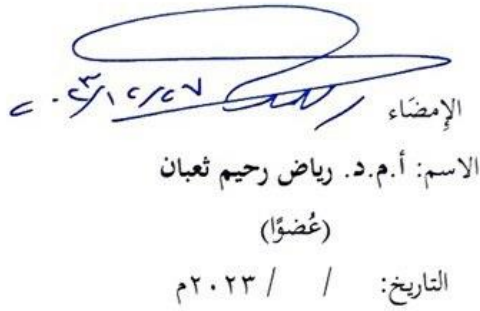 ٢٠٢٣/١٢/٢٧
الإمضَاء
الاسم: أ.م.د. رياض رحيم ثعبان
(عُضوًا)
التاريخ: / / ٢٠٢٣م